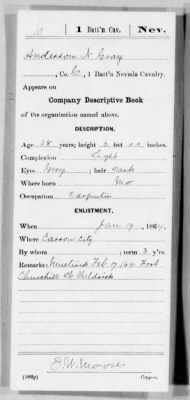 G | 1 Batt'n Cav. | Nev.
Anderson N. Gray
, Co. C, 1 Batt'n Nevada Cavalry.
Appears on
Company Descriptive Book
of the organization named above.
DESCRIPTION.
Age 28 years; height 5 feet inches.
Complexion Light
Eyes Gray ; hair Dark
Where born Mo
Occupation Carpenter
ENLISTMENT.
When Jan 19 , 1864.
Where Carson City
By whom ; term 3 y'rs.
Remarks: Mustered Feb 17 /64 Fort
Churchill
J. W. Moose
(383g) Copyist.